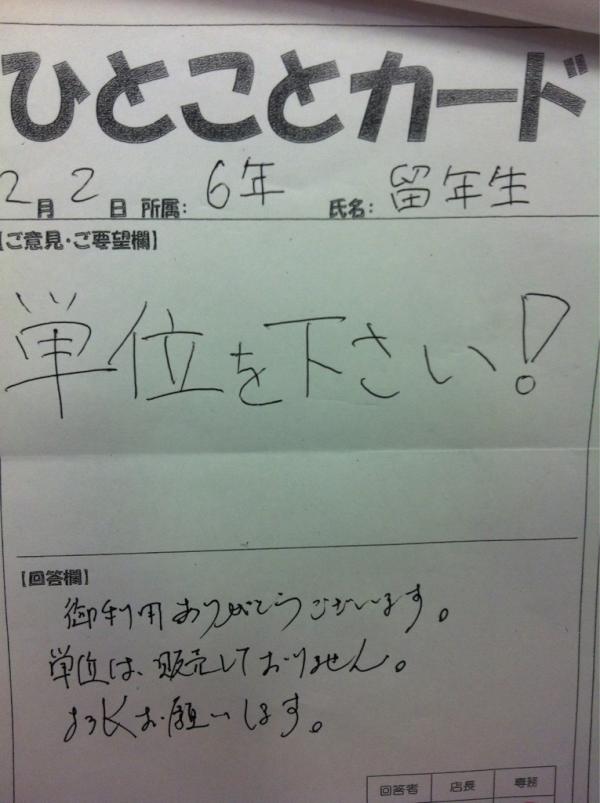 ひとことカード
2月2日 所属: 6年 氏名: 留年生
【ご意見・ご要望欄】
単位を下さい!
【回答欄】
御利用ありがとうございます。
単位は、販売しておりません。
お願いします。
回答者 店長 専務